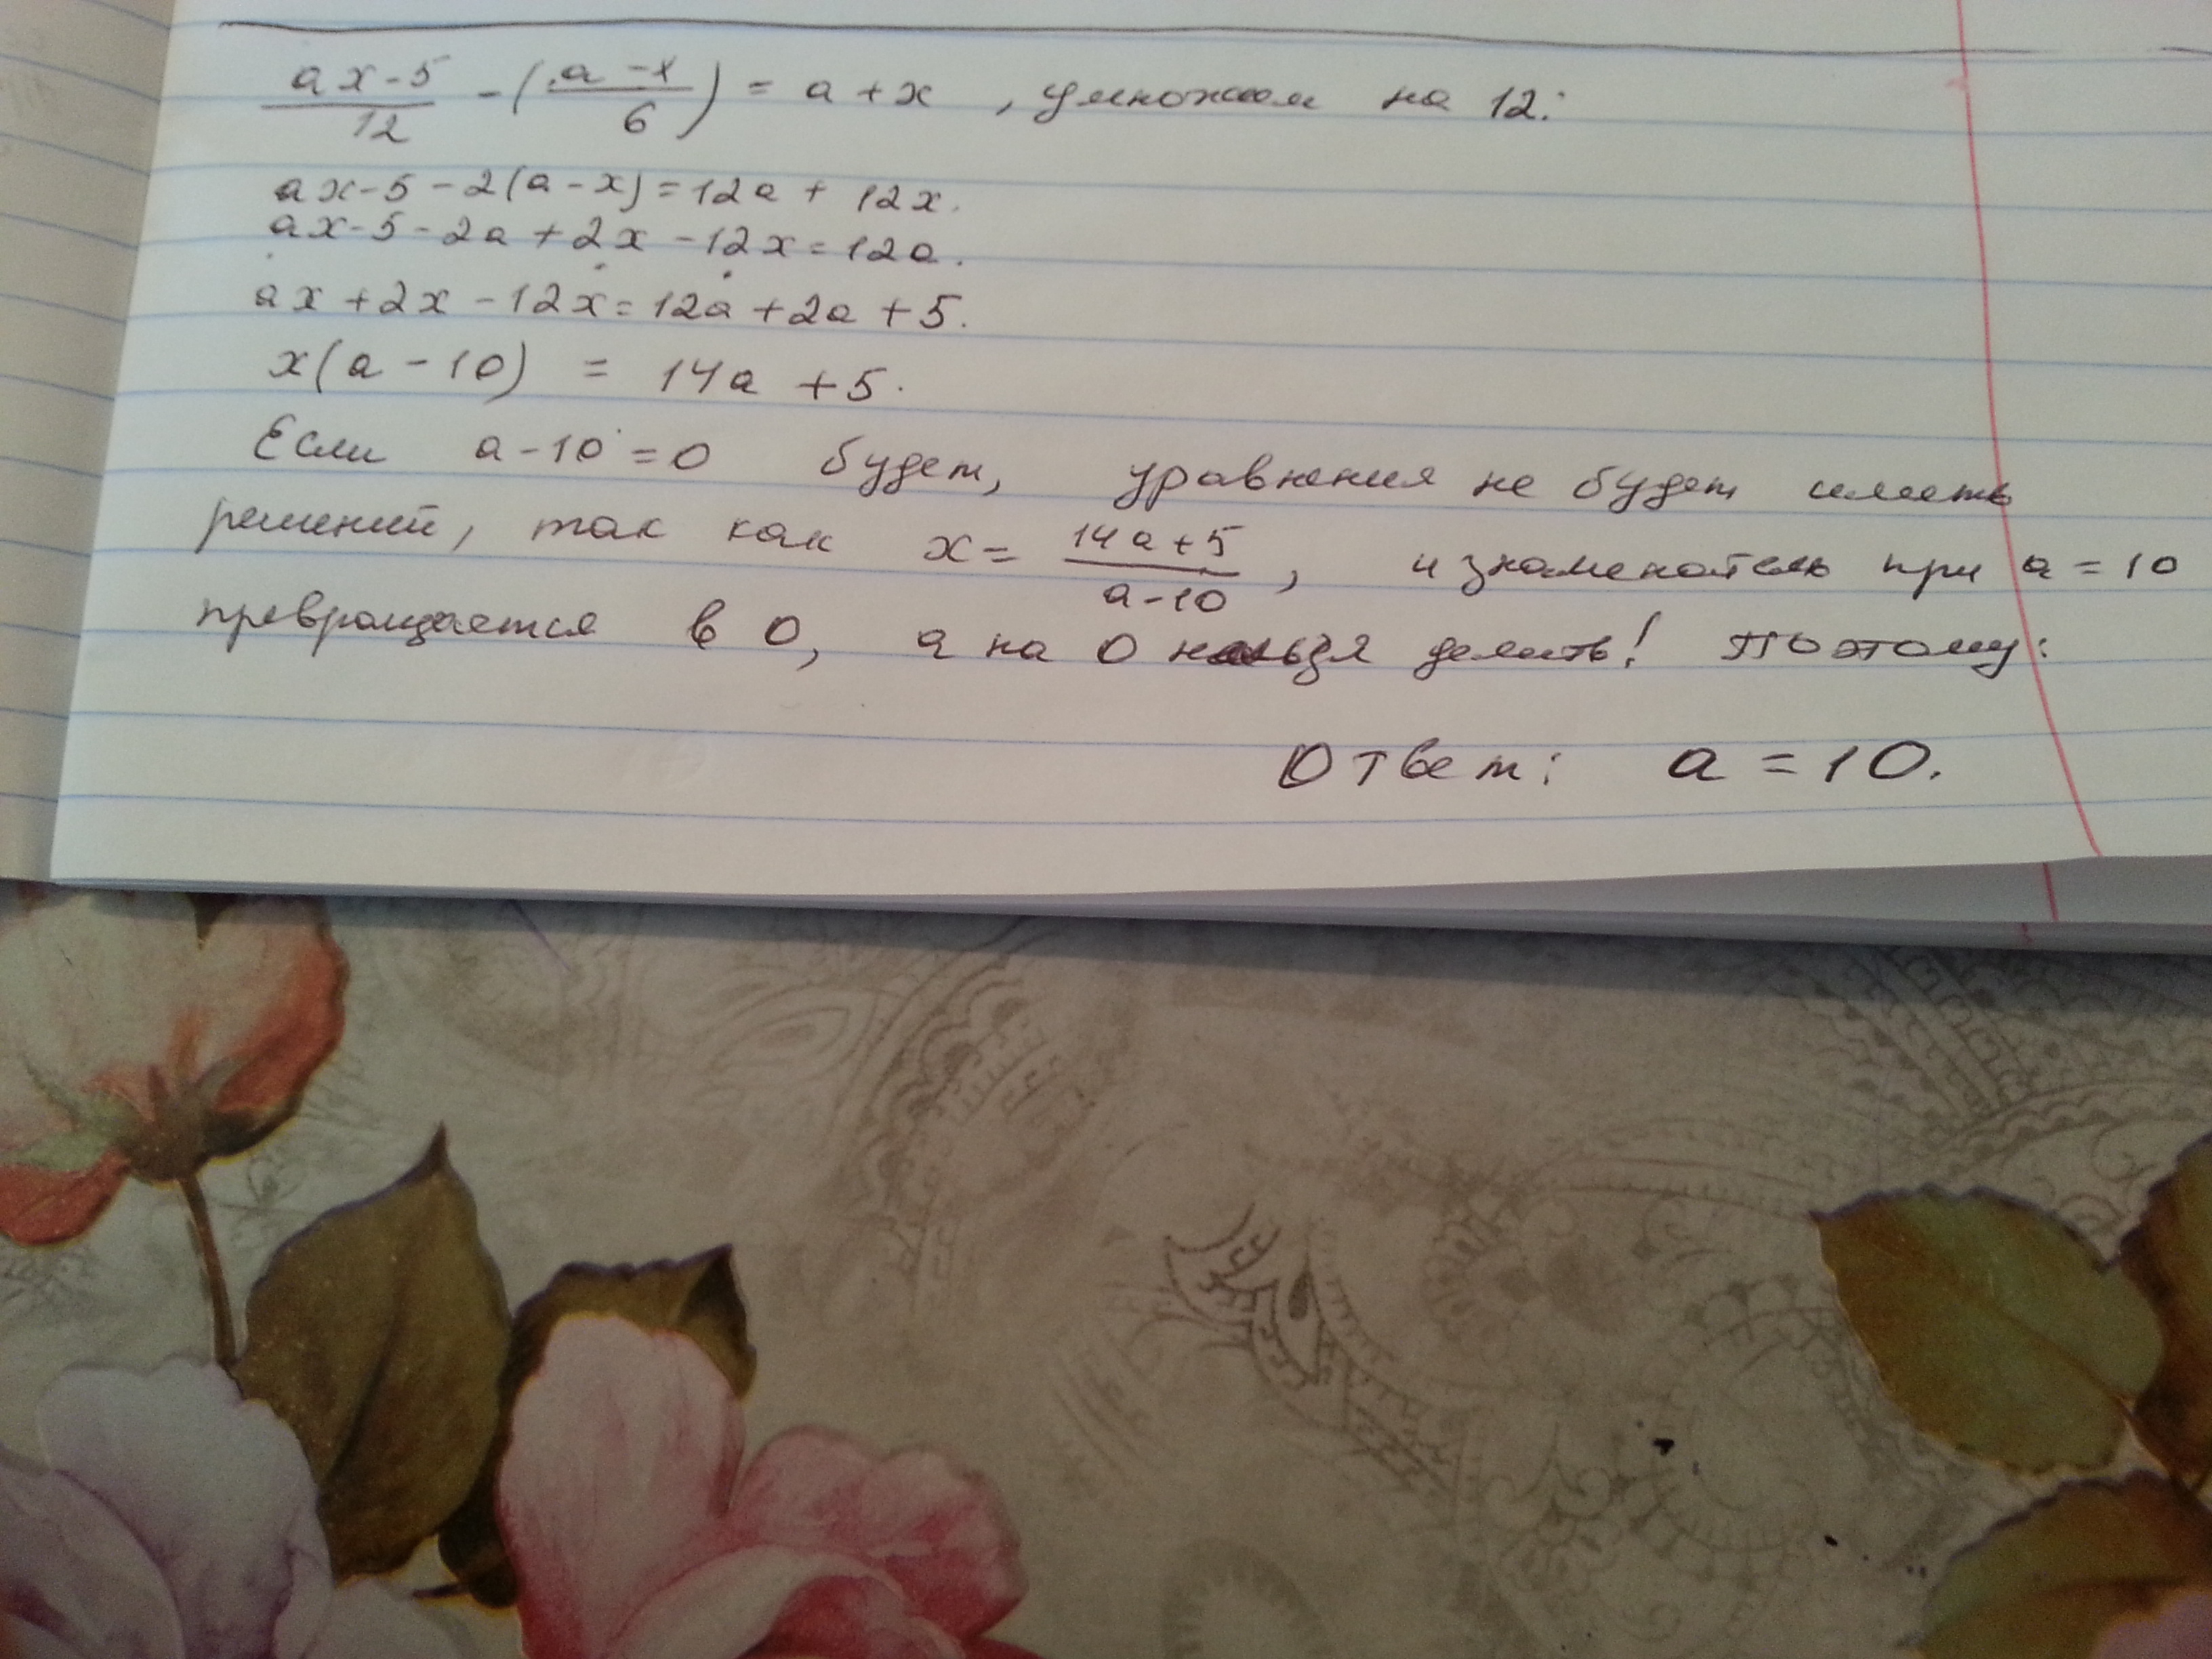 (ax-5)/12 - ((a-x)/6) = a+x , умножим на 12:
ax-5-2(a-x)=12a+12x.
ax-5-2a+2x-12x=12a.
ax+2x-12x=12a+2a+5.
x(a-10) = 14a+5.
Если a-10=0 будет, уравнения не будет иметь
решений, так как x= (14a+5)/(a-10), и знаменатель при a=10
превращается в 0, а на 0 нельзя делить! Поэтому:
Ответ: a=10.